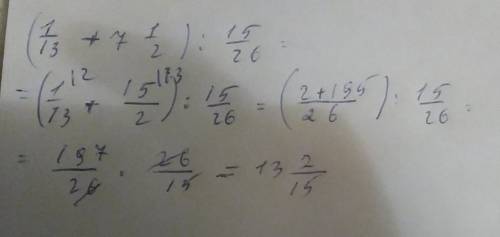 (1/13 + 7 1/2) : 15/26 =
= (1/13 |2 + 15/2 |13) : 15/26 = (2+195/26) : 15/26 =
= 197/26 · 26/15 = 13 2/15